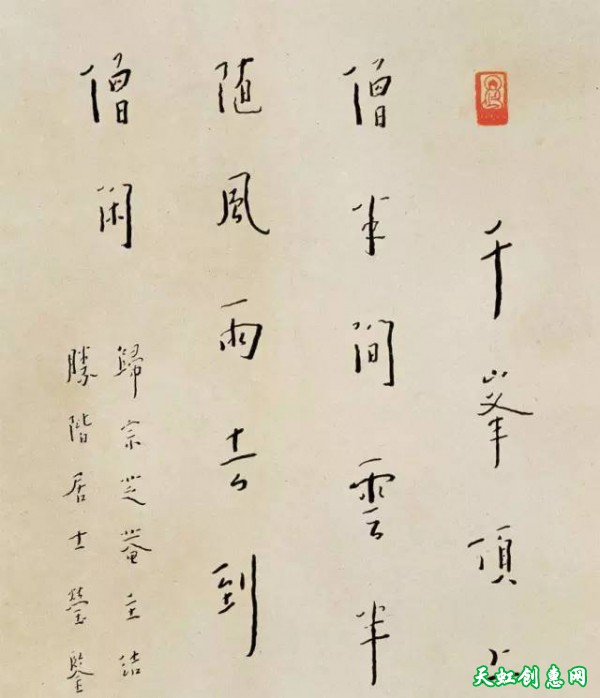 千峯頂
僧半間雲半
随風雨去到
僧閑
歸宗芝菴主
勝階居士鑒
天虹创惠网